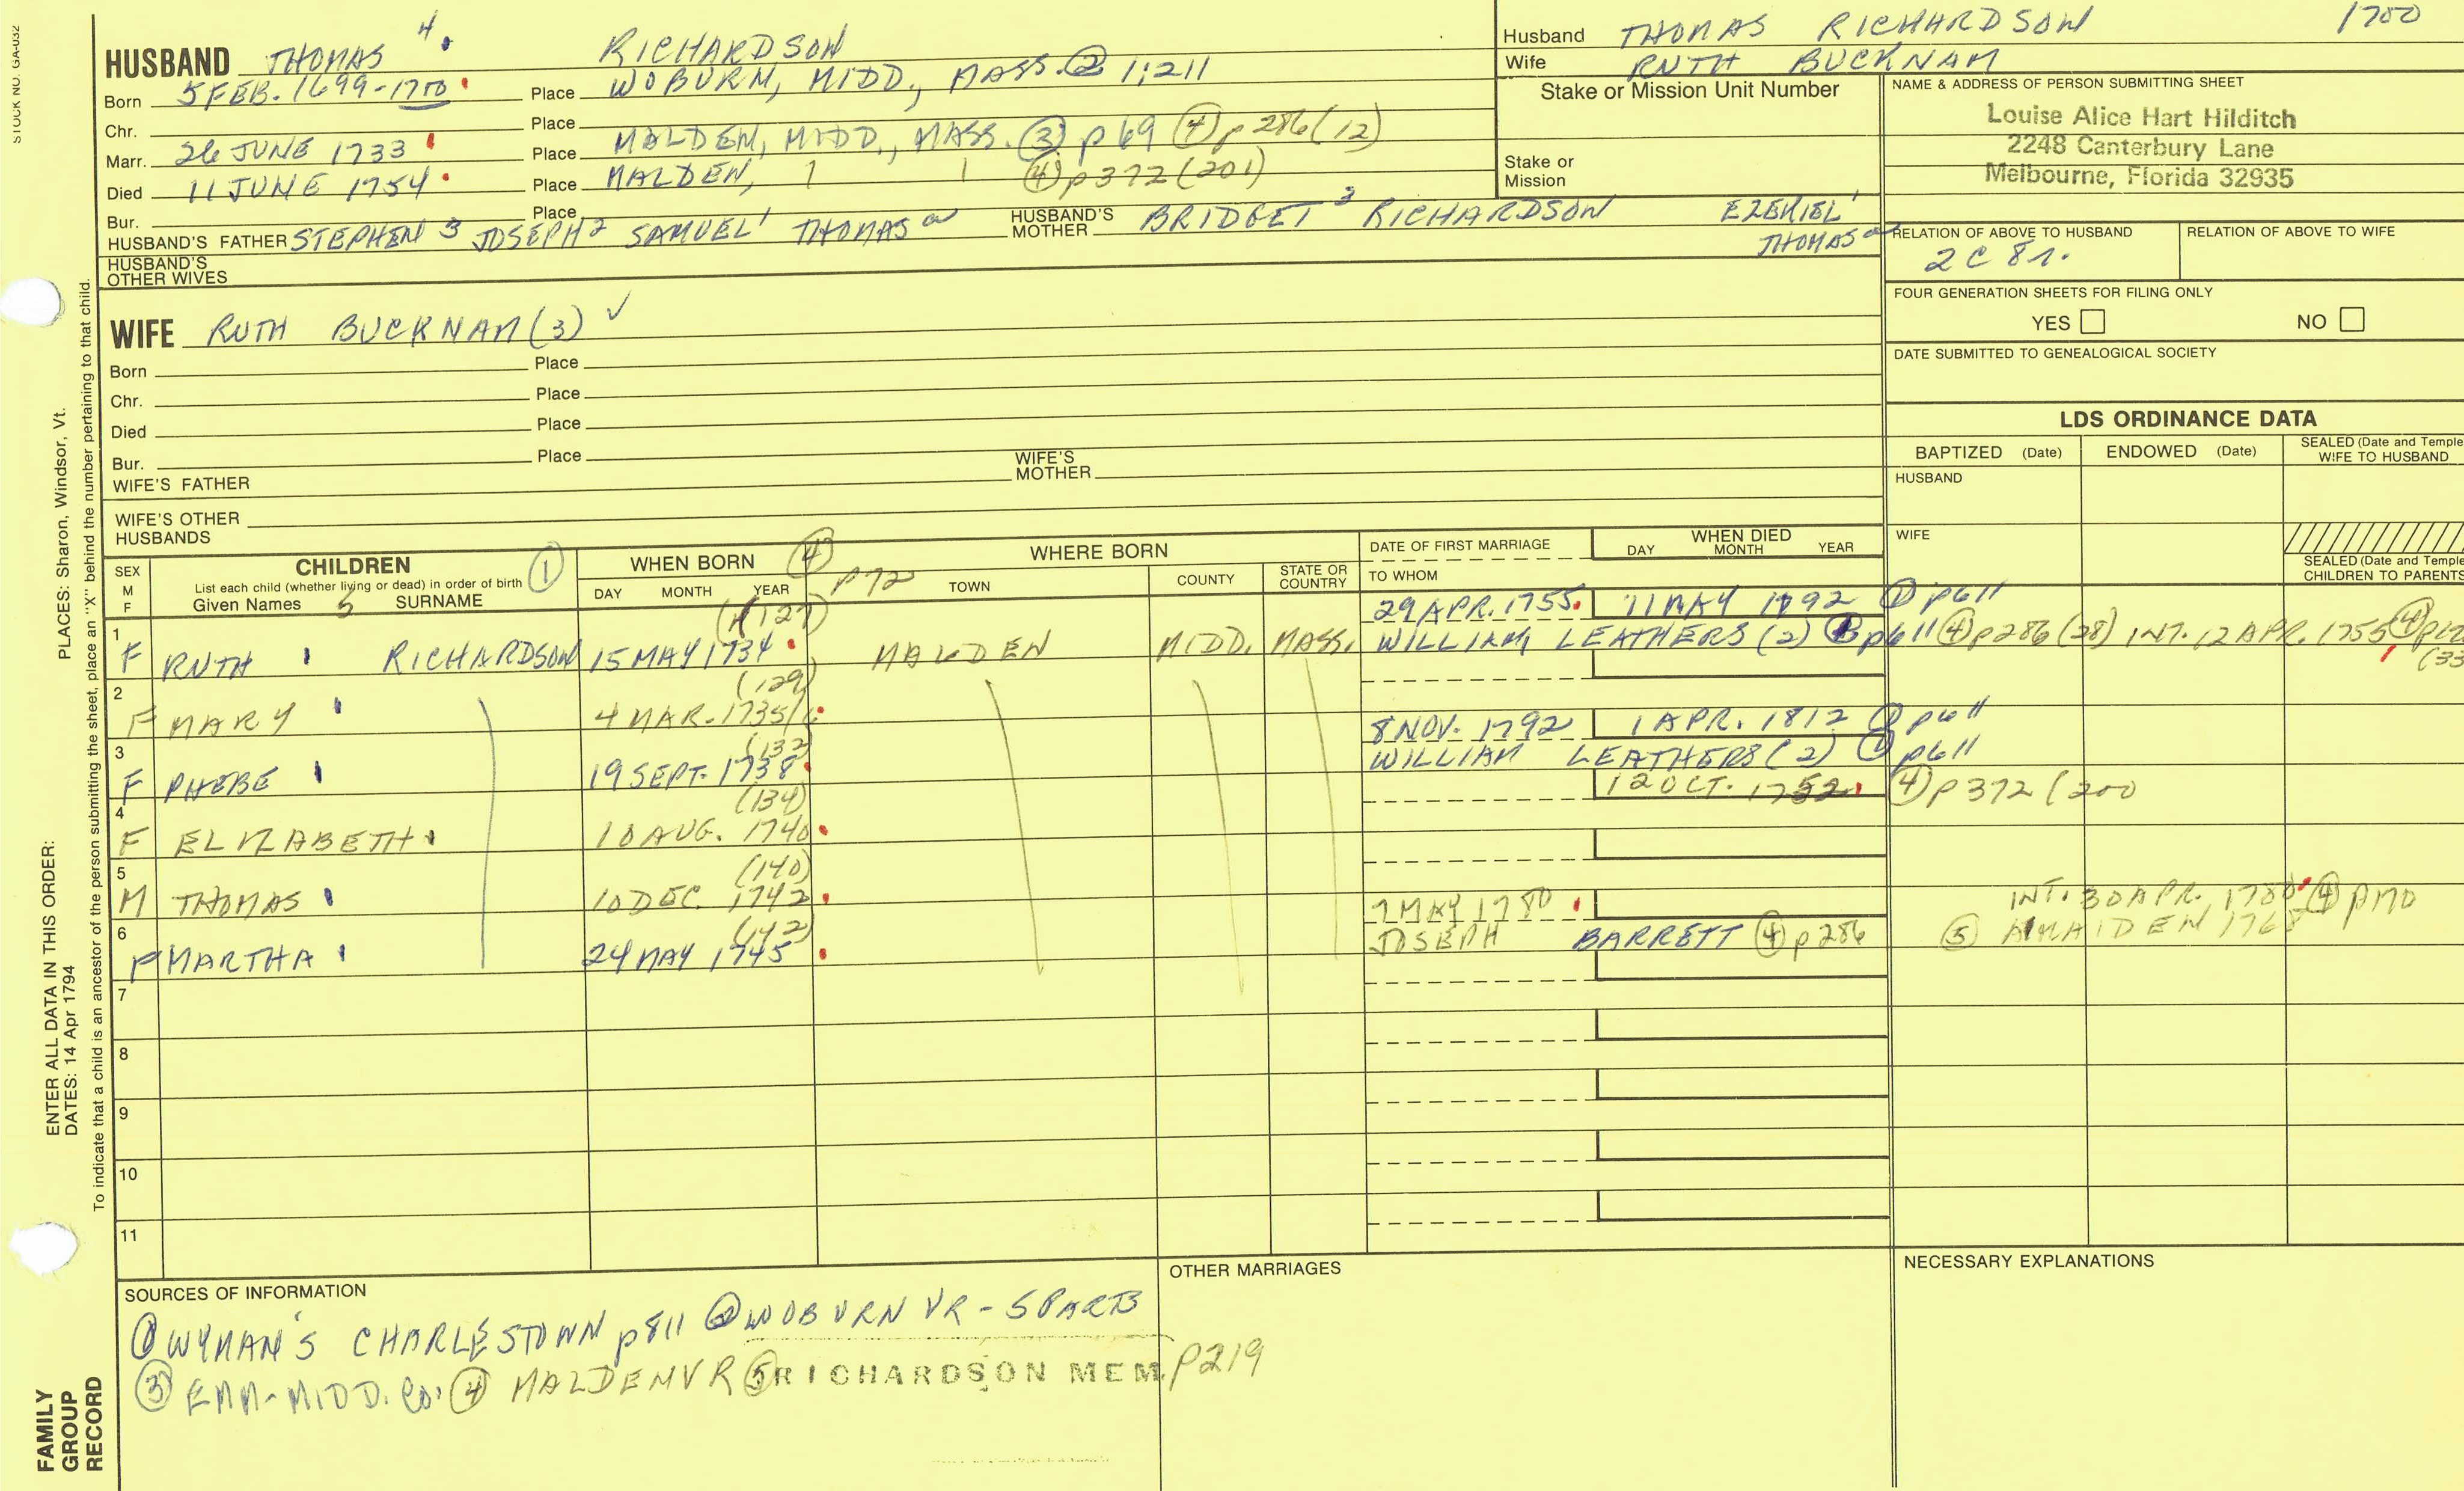 STOCK NO. GA-032
HUSBAND THOMAS 4. RICHARDSON
Born 5 FEB. 1699-1700 Place WOBURN, MIDD., MASS. ② 1:211
Chr. Place
Marr. 26 JUNE 1733 Place MALDEN, MIDD., MASS. ③ p 69 ④ p 286 (12)
Died 11 JUNE 1754 Place MALDEN, 1 1 ④ p 372 (201)
Bur. Place
HUSBAND'S FATHER STEPHEN 3 JOSEPH 2 SAMUEL 1 THOMAS a HUSBAND'S MOTHER BRIDGET 3 RICHARDSON EZEKIEL 1
THOMAS a
HUSBAND'S OTHER WIVES
Husband THOMAS RICHARDSON 1700
Wife RUTH BUCKNAM
Stake or Mission Unit Number
Stake or Mission
NAME & ADDRESS OF PERSON SUBMITTING SHEET
Louise Alice Hart Hilditch
2248 Canterbury Lane
Melbourne, Florida 32935
RELATION OF ABOVE TO HUSBAND RELATION OF ABOVE TO WIFE
2 C 8 r.
FOUR GENERATION SHEETS FOR FILING ONLY
YES NO
DATE SUBMITTED TO GENEALOGICAL SOCIETY
WIFE RUTH BUCKNAM (3) ✓
Born Place
Chr. Place
Died Place
Bur. Place
WIFE'S FATHER WIFE'S MOTHER
WIFE'S OTHER HUSBANDS
LDS ORDINANCE DATA
BAPTIZED (Date) ENDOWED (Date) SEALED (Date and Temple WIFE TO HUSBAND
HUSBAND
WIFE
SEALED (Date and Temple CHILDREN TO PARENTS
SEX M F
CHILDREN ①
List each child (whether living or dead) in order of birth
Given Names 5 SURNAME
WHEN BORN ④ p 72
DAY MONTH YEAR
WHERE BORN
TOWN COUNTY STATE OR COUNTRY
DATE OF FIRST MARRIAGE
TO WHOM
WHEN DIED
DAY MONTH YEAR
(127) 29 APR. 1755 11 MAY 1792 ① p611
1 F RUTH RICHARDSON 15 MAY 1734 MALDEN MIDD. MASS. WILLIAM LEATHERS (2) p611 ④ p286 (28) INT. 12 APR. 1755 ④
(33
2 (129)
F MARY 4 MAR. 1735/6
8 NOV. 1792 1 APR. 1812 ① p611
3 (132) WILLIAM LEATHERS (2) ① p611
F PHEBE 19 SEPT. 1738
12 OCT. 1752 ④ p 372 (200
4 (134)
F ELIZABETH 10 AUG. 1740
5 (140)
M THOMAS 10 DEC. 1742
7 MAY 1780 INT. 30 APR. 1780 ④ p170
6 (142) JOSEPH BARRETT ④ p 286 ⑤ A MAIDEN 1768
F MARTHA 24 MAY 1745
7
8
9
10
11
SOURCES OF INFORMATION
① WYMAN'S CHARLESTOWN p811 ② WOBURN VR - 5 PARTS
③ EMM-MIDD. Co. ④ MALDEN VR ⑤ RICHARDSON MEM. p219
OTHER MARRIAGES
NECESSARY EXPLANATIONS
FAMILY GROUP RECORD
ENTER ALL DATA IN THIS ORDER:
DATES: 14 Apr 1794
PLACES: Sharon, Windsor, Vt.
To indicate that a child is an ancestor of the person submitting the sheet, place an "X" behind the number pertaining to that child.